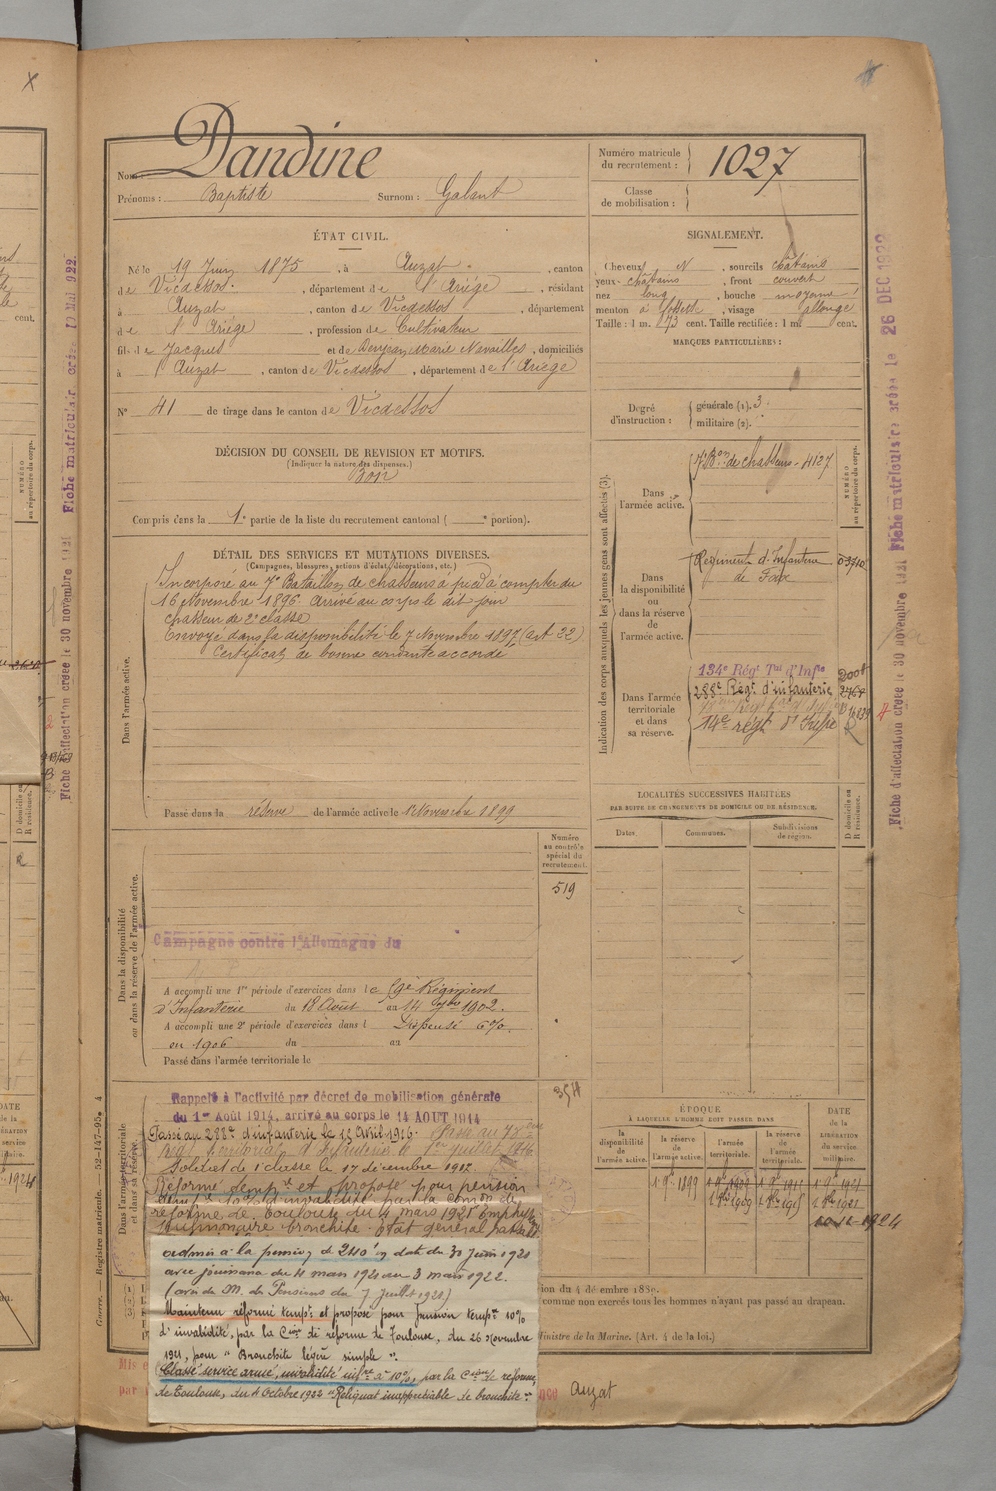 Nom : Dandine
Prénoms : Baptiste Surnom : Galant
Numéro matricule du recrutement : 1027
Classe de mobilisation :
ÉTAT CIVIL.
Né le 19 Juin 1875, à Auzat, canton
de Vicdessos, département de l'Ariège, résidant
à Auzat, canton de Vicdessos, département
de l'Ariège, profession de Cultivateur
fils de Jacques et de Marie Navailles, domiciliés
à Auzat, canton de Vicdessos, département de l'Ariège
N° 41 de tirage dans le canton de Vicdessos
SIGNALEMENT.
Cheveux N, sourcils châtains
yeux châtains, front couvert
nez long, bouche moyenne
menton à fossette, visage allongé
Taille : 1 m. 73 cent. Taille rectifiée : 1 m. cent.
MARQUES PARTICULIÈRES :
Degré d'instruction : générale (1). 3
militaire (2).
DÉCISION DU CONSEIL DE REVISION ET MOTIFS.
(Indiquer la nature des dispenses.)
Bon
Compris dans la 1e partie de la liste du recrutement cantonal ( e portion).
DÉTAIL DES SERVICES ET MUTATIONS DIVERSES.
(Campagnes, blessures, actions d'éclat, décorations, etc.)
Dans l'armée active.
Incorporé au 7e Bataillon de chasseurs à pied à compter du
16 Novembre 1896. Arrivé au corps le dit jour
chasseur de 2e classe
Envoyé dans la disponibilité le 7 Novembre 1897 (art 22)
Certificat de bonne conduite accordé
Passé dans la réserve de l'armée active le 1 Novembre 1899
Indication des corps auxquels les jeunes gens sont affectés (3).
NUMÉRO au répertoire du corps.
Dans l'armée active.
7e Bon de chasseurs - 4127
Dans la disponibilité ou dans la réserve de l'armée active.
Régiment d'Infanterie
de Foix
Dans l'armée territoriale et dans sa réserve.
134e Régt Tal d'Infie
288e Régt d'infanterie
14e régt d'Infie
LOCALITÉS SUCCESSIVES HABITÉES
PAR SUITE DE CHANGEMENTS DE DOMICILE OU DE RÉSIDENCE.
Dates. Communes. Subdivisions de région. D domicile ou R résidence.
Dans la disponibilité ou dans la réserve de l'armée active.
Numéro au contrôle spécial du recrutement.
519
Campagne contre l'Allemagne du
A accompli une 1re période d'exercices dans le 59e Régiment
d'Infanterie du 18 Août au 14 7bre 1902.
A accompli une 2e période d'exercices dans l Dispensé 6%
en 1906 du au
Passé dans l'armée territoriale le
Dans l'armée territoriale et dans sa réserve.
354
Rappelé à l'activité par décret de mobilisation générale
du 1er Août 1914, arrivé au corps le 14 AOUT 1914
Passé au 288e d'infanterie le 15 Avril 1916. Passé au
Soldat de 1e classe le 17 décembre 1917.
Réformé tempre et proposé pour pension
tempre 10% d'invalidité par la comon de
réforme de Toulouse du 4 mars 1921
pulmonaire bronchite. État général
admis à la pension de 240 f en date du 30 juin 1921
avec jouissance du 4 mars 1921 au 3 mars 1922.
(avis de M. des Pensions du 7 Juillet 1921)
Maintenu réformé tempre et proposé pour pension tempre 10%
d'invalidité, par la Cion de réforme de Toulouse, du 26 Novembre
1921, pour "Bronchite légère simple".
Classé service armé, invalidité infre à 10%, par la Cion de réforme
de Toulouse, du 4 Octobre 1922 "Reliquat inappréciable de bronchite".
ÉPOQUE
À LAQUELLE L'HOMME DOIT PASSER DANS
la disponibilité de l'armée active. la réserve de l'armée active. l'armée territoriale. la réserve de l'armée territoriale.
DATE de la LIBÉRATION du service militaire.
1 9bre 1899
tion du 4 décembre 1889.
comme non exercés tous les hommes n'ayant pas passé au drapeau.
Ministre de la Marine. (Art. 4 de la loi.)
Auzat
Guerre. — Registre matricule. — 52-147-95.
Fiche matriculaire créée le 26 DEC 1922
Fiche d'affectation créée le 30 novembre 1921
Fiche matriculaire créée 10 Mai 922
Fiche d'affectation créée le 30 novembre 1921